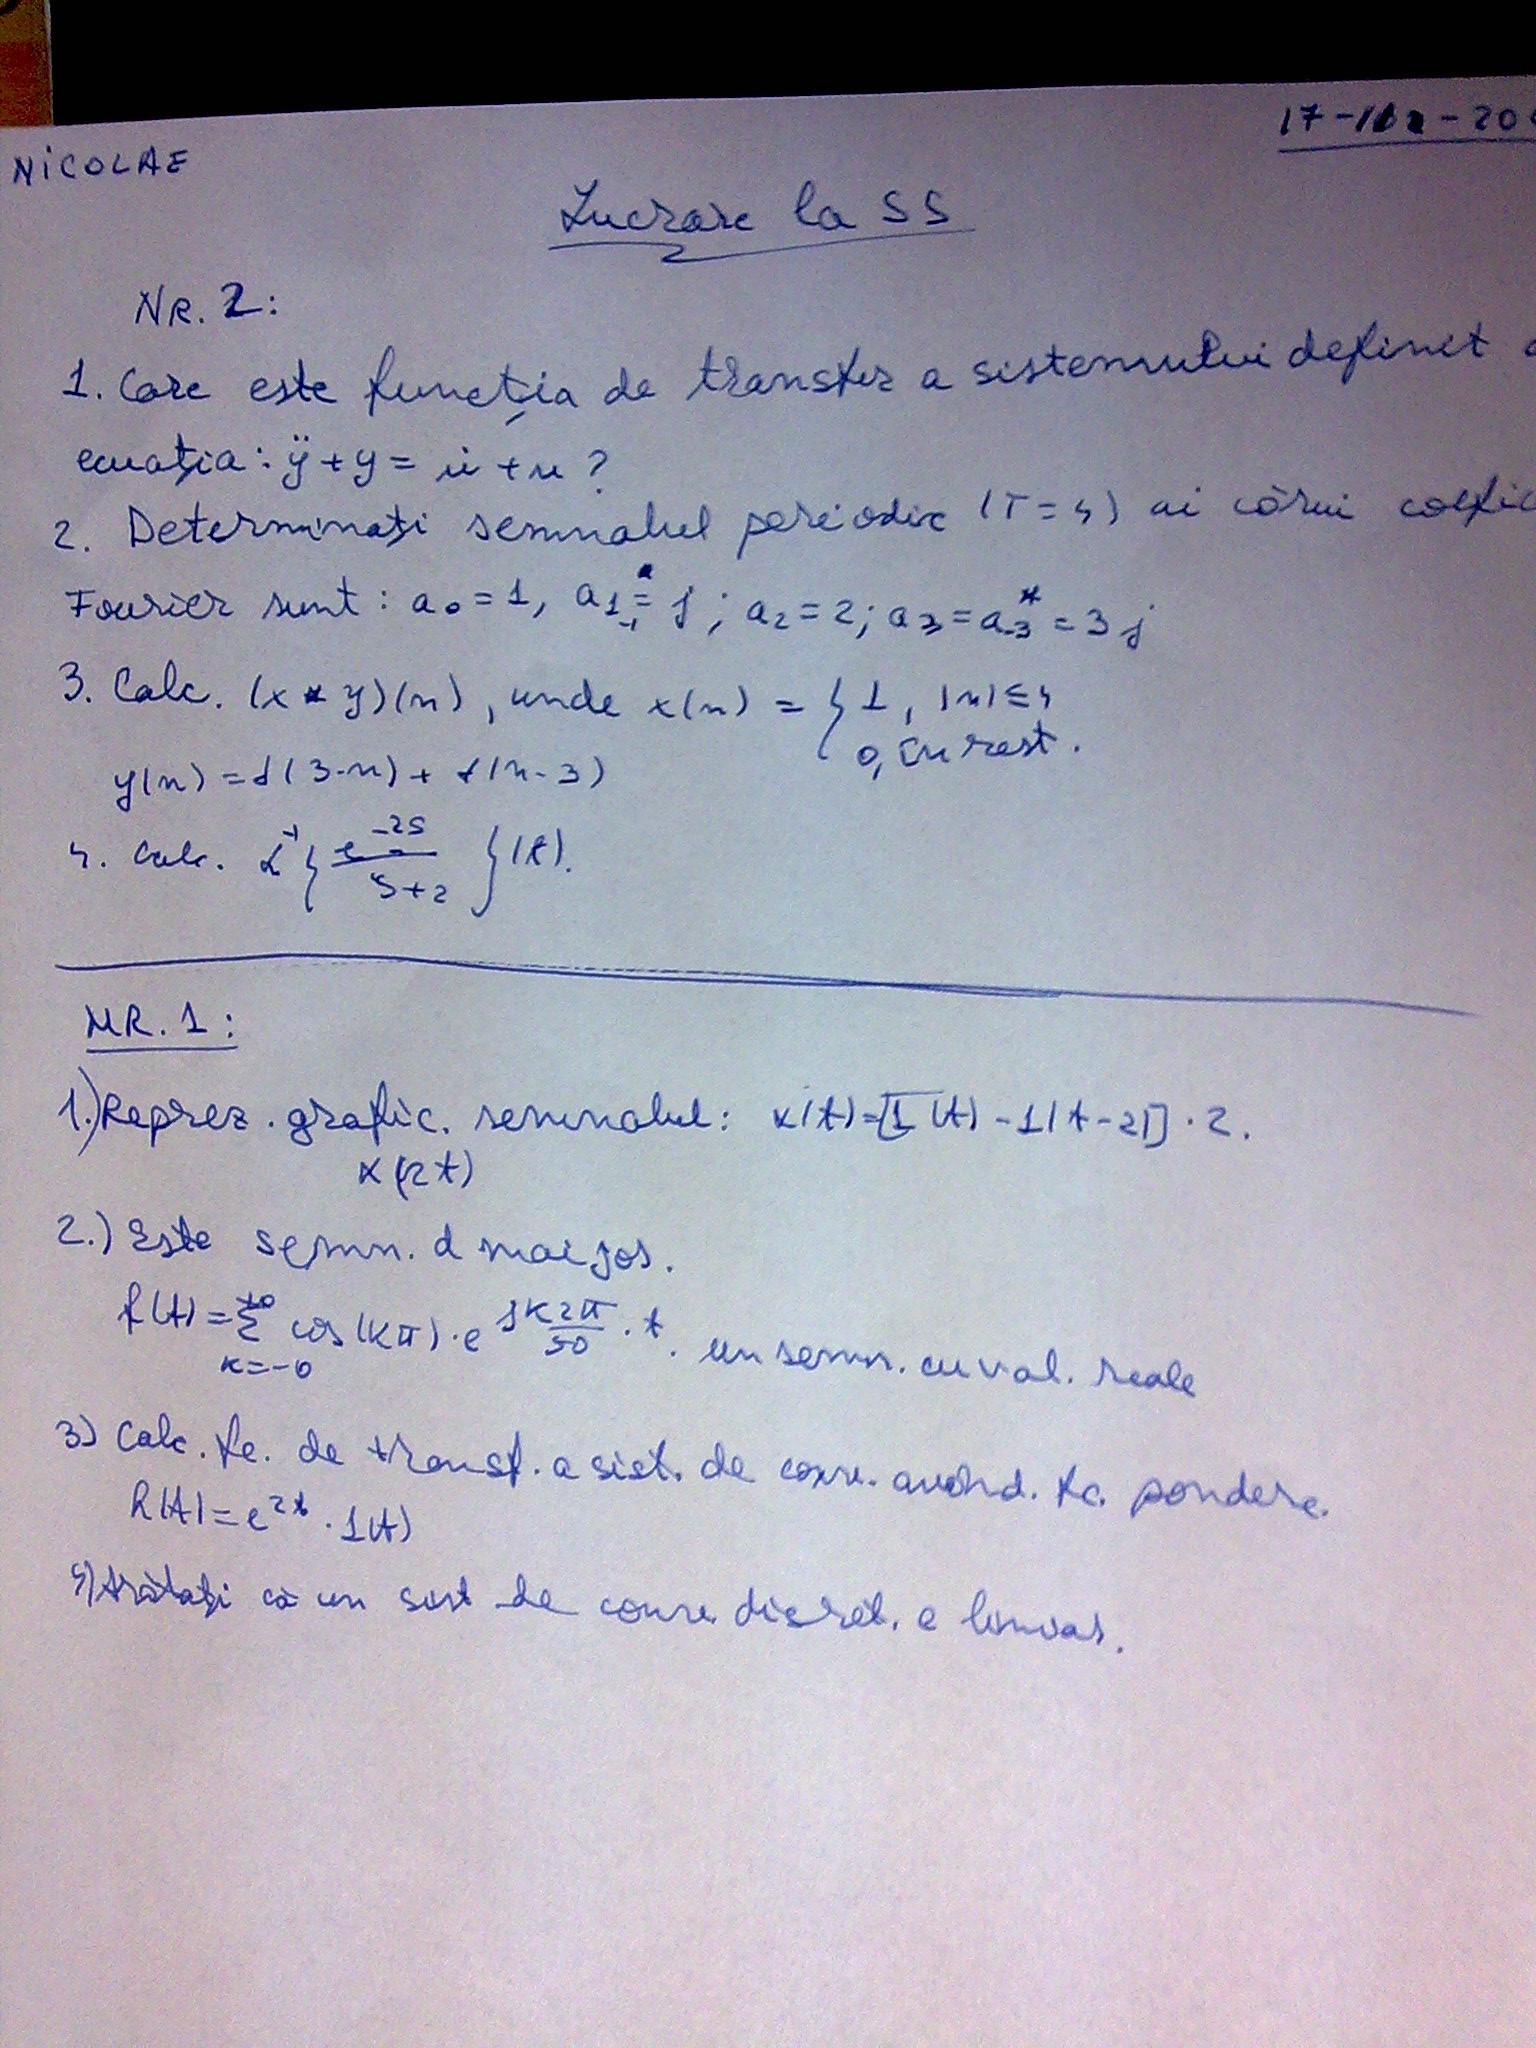 NICOLAE
Lucrare la SS
NR. 2:
1. Care este funcția de transfer a sistemului definit
ecuația: ÿ + y = u̇ + u ?
2. Determinați semnalul periodic (T = 4) ai cărui
Fourier sunt: a₀ = 1, a₁ = j ; a₂ = 2; a₃ = a₋₃* = 3j
3. Calc. (x * y)(n), unde x(n) = { 1, |n| ≤ 4
0, în rest.
y(n) = δ(3-n) + δ(n-3)
4. Calc. L⁻¹ { e^{-2s} / s+2 } (t).
NR. 1:
1.) Reprez. grafic. semnalul: x(t) = [1(t) - 1(t-2)] · 2.
x(2t)
2.) Este semn. d mai jos.
f(t) = Σ cos(kπ) · e^{jk 2π/50 · t}. un semn. cu val. reale
3) Calc. fc. de transf. a sist. de conv. având. fc. pondere.
h(t) = e^{2t} · 1(t)
4) Arătați că un sist de conv. discret. e liniar.